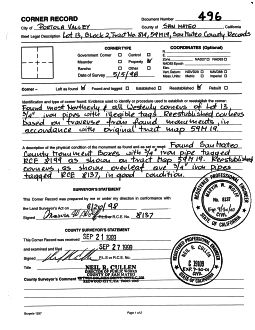 CORNER RECORD
Document Number 496
City of PORTOLA VALLEY County of SAN MATEO , California
Brief Legal Description Lot 13, Block 2, Tract No. 814, 59M19, San Mateo County Records
CORNER TYPE
COORDINATES (Optional)
Government Corner Control
Meander Property
Rancho Other
Date of Survey 5/5/98
Corner - Left as found Found and tagged Established Reestablished Rebuilt
Identification and type of corner found: Evidence used to identify or procedure used to establish or reestablish the corner:
Found most Northerly & Westerly corners of Lot 13,
3/4" iron pipes with illegible tags. Reestablished corners
based on traverse from found monuments, in
accordance with original tract map 59M19.
A description of the physical condition of the monument as found and as set or reset: Found San Mateo
County Monument Boxes with 3/4" iron pipe tagged
as shown on tract map 59M19. Reestablished
corners, as shown overleaf are 3/4" iron pipes
tagged RCE 8137, in good condition.
SURVEYOR'S STATEMENT
This Corner Record was prepared by me or under my direction in conformance with
the Land Surveyor's Act on
Signed P.L.S or R.C.E. No. 8137
COUNTY SURVEYOR'S STATEMENT
This Corner Record was received SEP 21 1999
and examined and filed SEP 27 1999
Signed P.L.S or R.C.E. No.
Title
County Surveyor's Comment
NEIL R. CULLEN
DIRECTOR OF PUBLIC WORKS
COUNTY OF SAN MATEO
REDWOOD CITY, CALIF.
REGISTERED PROFESSIONAL ENGINEER
No. 8137
CIVIL
REGISTERED PROFESSIONAL ENGINEER
NEIL R. CULLEN
CIVIL
Page 1 of 2